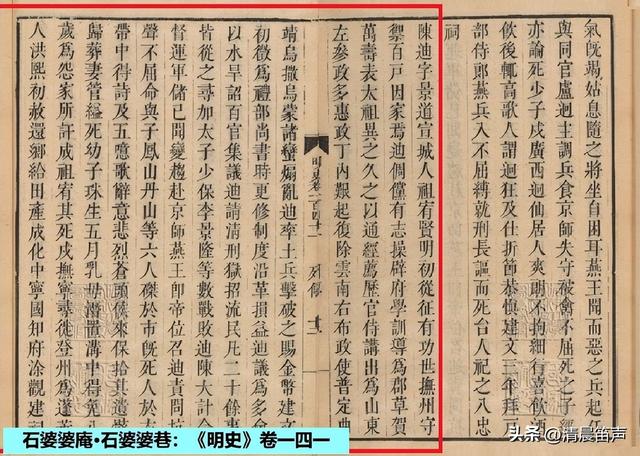 氣旣竭姑息隨之將坐自困耳燕王聞而惡之兵起任
與同官盧迥主調兵食京師失守被禽不屈死之子
亦論死少子戍廣西迥仙居人爽朗不拘細行喜飲酒
飲後輒高歌人謂迥狂及仕折節恭慎建文三年拜戶
部侍郞燕兵入不屈縛就刑長謳而死台人祀之八忠
祠
陳迪字景道宣城人祖宥賢明初從征有功世撫州守
禦百戶因家焉迪倜儻有志操辟府學訓導爲郡草賀
萬壽表太祖異之久之以通經薦歷官侍講出爲山東
左參政多惠政丁內艱起復除雲南右布政使普定曲
明史卷一百四十一 列傳 十三
靖烏撒烏蒙諸蠻煽亂迪率士兵擊破之賜金幣建文
初徵爲禮部尚書時更修制度沿革損益迪議爲多會
以水旱詔百官集議迪請清刑獄招流民凡二十餘事
皆從之尋加太子少保李景隆等數戰敗迪陳大計命
督運軍儲已聞變趨赴京師燕王卽帝位召迪責問抗
聲不屈命與子鳳山丹山等六人磔於市旣死人於
帶中得詩及五噫歌辭意悲烈蒼頭侯來保拾其遺骸
歸葬妻管縊死幼子珠生五月乳母潛置溝中得免
歲爲怨家所訐成祖宥其死戍撫寧尋徙登州爲蓬
人洪熙初赦還鄕給田產成化中寧國知府涂觀建祠
石婆婆庵•石婆婆巷：《明史》卷一四一
头条 @清晨笛声